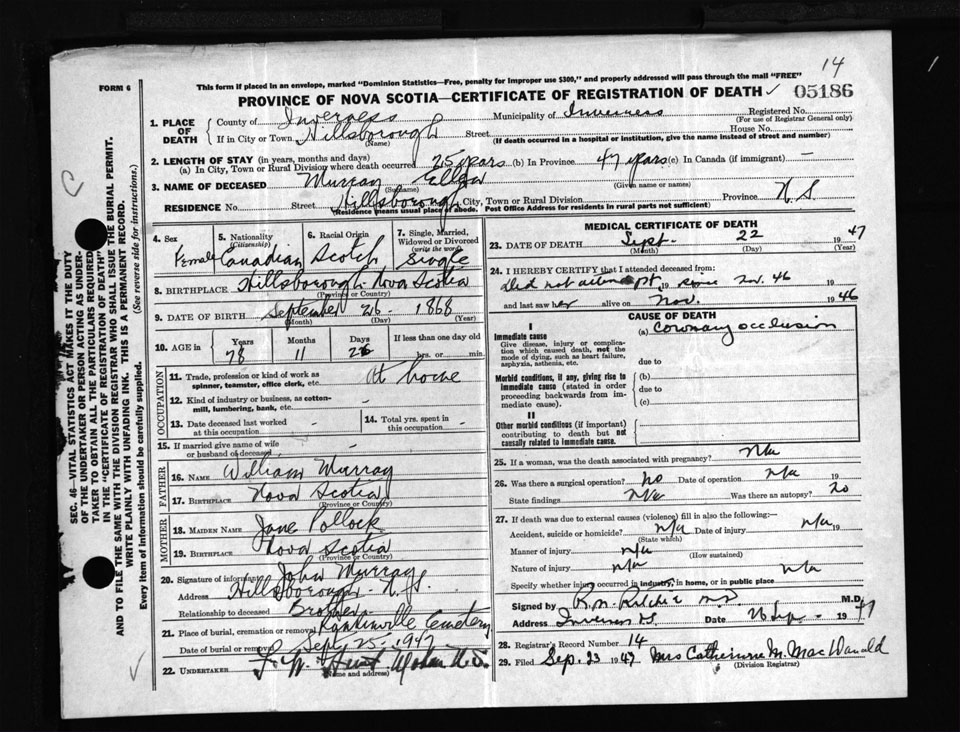 14
FORM 6
This form if placed in an envelope, marked "Dominion Statistics—Free, penalty for improper use $300," and properly addressed will pass through the mail "FREE"
PROVINCE OF NOVA SCOTIA—CERTIFICATE OF REGISTRATION OF DEATH ✓ 05186
1. PLACE OF DEATH
County of Inverness Municipality of Inverness Registered No.
(For use of Registrar General only)
If in City or Town Hillsborough Street House No.
(Name) (If death occurred in a hospital or institution, give the name instead of street and number)
2. LENGTH OF STAY (in years, months and days)
(a) In City, Town or Rural Division where death occurred 25 years (b) In Province 47 years (c) In Canada (if immigrant) —
3. NAME OF DECEASED Murray Ellen
(Surname) (Given name or names)
RESIDENCE No. Street Hillsborough City, Town or Rural Division Province N.S.
(Residence means usual place of abode. Post Office Address for residents in rural parts not sufficient)
4. Sex Female
5. Nationality (Citizenship) Canadian
6. Racial Origin Scotch
7. Single, Married, Widowed or Divorced (write the word) Single
8. BIRTHPLACE Hillsborough Nova Scotia
(Province or Country)
9. DATE OF BIRTH September 26 1868
(Month) (Day) (Year)
10. AGE Years 78 Months 11 Days 26 If less than one day old hrs. or min.
OCCUPATION
11. Trade, profession or kind of work as spinner, teamster, office clerk, etc. At home
12. Kind of industry or business, as cotton-mill, lumbering, bank, etc. -
13. Date deceased last worked at this occupation -
14. Total yrs. spent in this occupation -
15. If married give name of wife or husband of deceased -
FATHER
16. NAME William Murray
17. BIRTHPLACE Nova Scotia
(Province or Country)
MOTHER
18. MAIDEN NAME Jane Pollock
19. BIRTHPLACE Nova Scotia
(Province or Country)
20. Signature of informant John Murray
Address Hillsborough N.S.
Relationship to deceased Brother
21. Place of burial, cremation or removal Cemetery
Date of burial or removal Sept 25 - 1947
22. UNDERTAKER F. W.
(Name and address)
MEDICAL CERTIFICATE OF DEATH
23. DATE OF DEATH Sept. 22 1947
(Month) (Day) (Year)
24. I HEREBY CERTIFY that I attended deceased from:
Did not attend pt. 19 since Nov. 46 19
and last saw her alive on Nov. 1946
CAUSE OF DEATH
I
Immediate cause (a) Coronary occlusion
Give disease, injury or complication which caused death, not the mode of dying, such as heart failure, asphyxia, asthenia, etc.
due to
Morbid conditions, if any, giving rise to immediate cause (stated in order proceeding backwards from immediate cause).
(b)
due to
(c)
II
Other morbid conditions (if important) contributing to death but not causally related to immediate cause.
25. If a woman, was the death associated with pregnancy? N/a
26. Was there a surgical operation? No Date of operation N/a 19
State findings N/a Was there an autopsy? No
27. If death was due to external causes (violence) fill in also the following:—
Accident, suicide or homicide? N/a Date of injury N/a 19
(State which)
Manner of injury N/a
(How sustained)
Nature of injury N/a
Specify whether injury occurred in industry, in home, or in public place N/a
Signed by R.N. Ritchie M.D. M.D.
Address Inverness Date 1947
28. Registrar's Record Number 14
29. Filed Sep. 23 1947 Mrs Catherine M. MacDonald
(Division Registrar)
SEC. 46—VITAL STATISTICS ACT MAKES IT THE DUTY
OF THE UNDERTAKER OR PERSON ACTING AS UNDER-
TAKER TO OBTAIN ALL THE PARTICULARS REQUIRED
IN THE "CERTIFICATE OF REGISTRATION OF DEATH" AND
TO FILE THE SAME WITH THE DIVISION REGISTRAR WHO SHALL ISSUE THE BURIAL PERMIT.
WRITE PLAINLY WITH UNFADING INK. THIS IS A PERMANENT RECORD.
Every item of information should be carefully supplied. (See reverse side for instructions.)